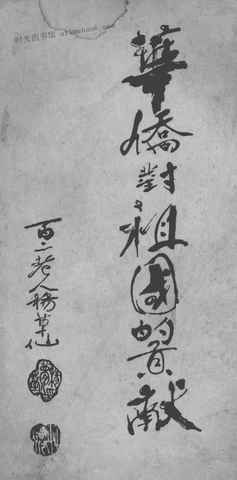 華僑對祖國的貢獻
百二老人楊草仙